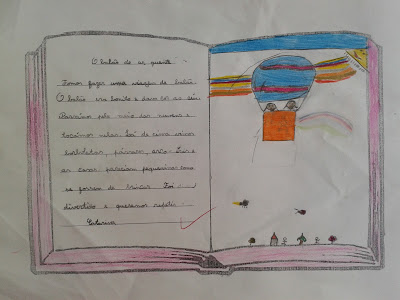 O balão de ar quente
Fomos fazer uma viagem de balão.
O balão era bonito e dava cor ao céu.
Passámos pelo meio das nuvens e
tocámos nelas. Lá de cima vimos
borboletas, pássaros, arco-íris e
as casas pareciam pequeninas como
se fossem de brincar. Foi
divertido e queremos repetir.
Catarina